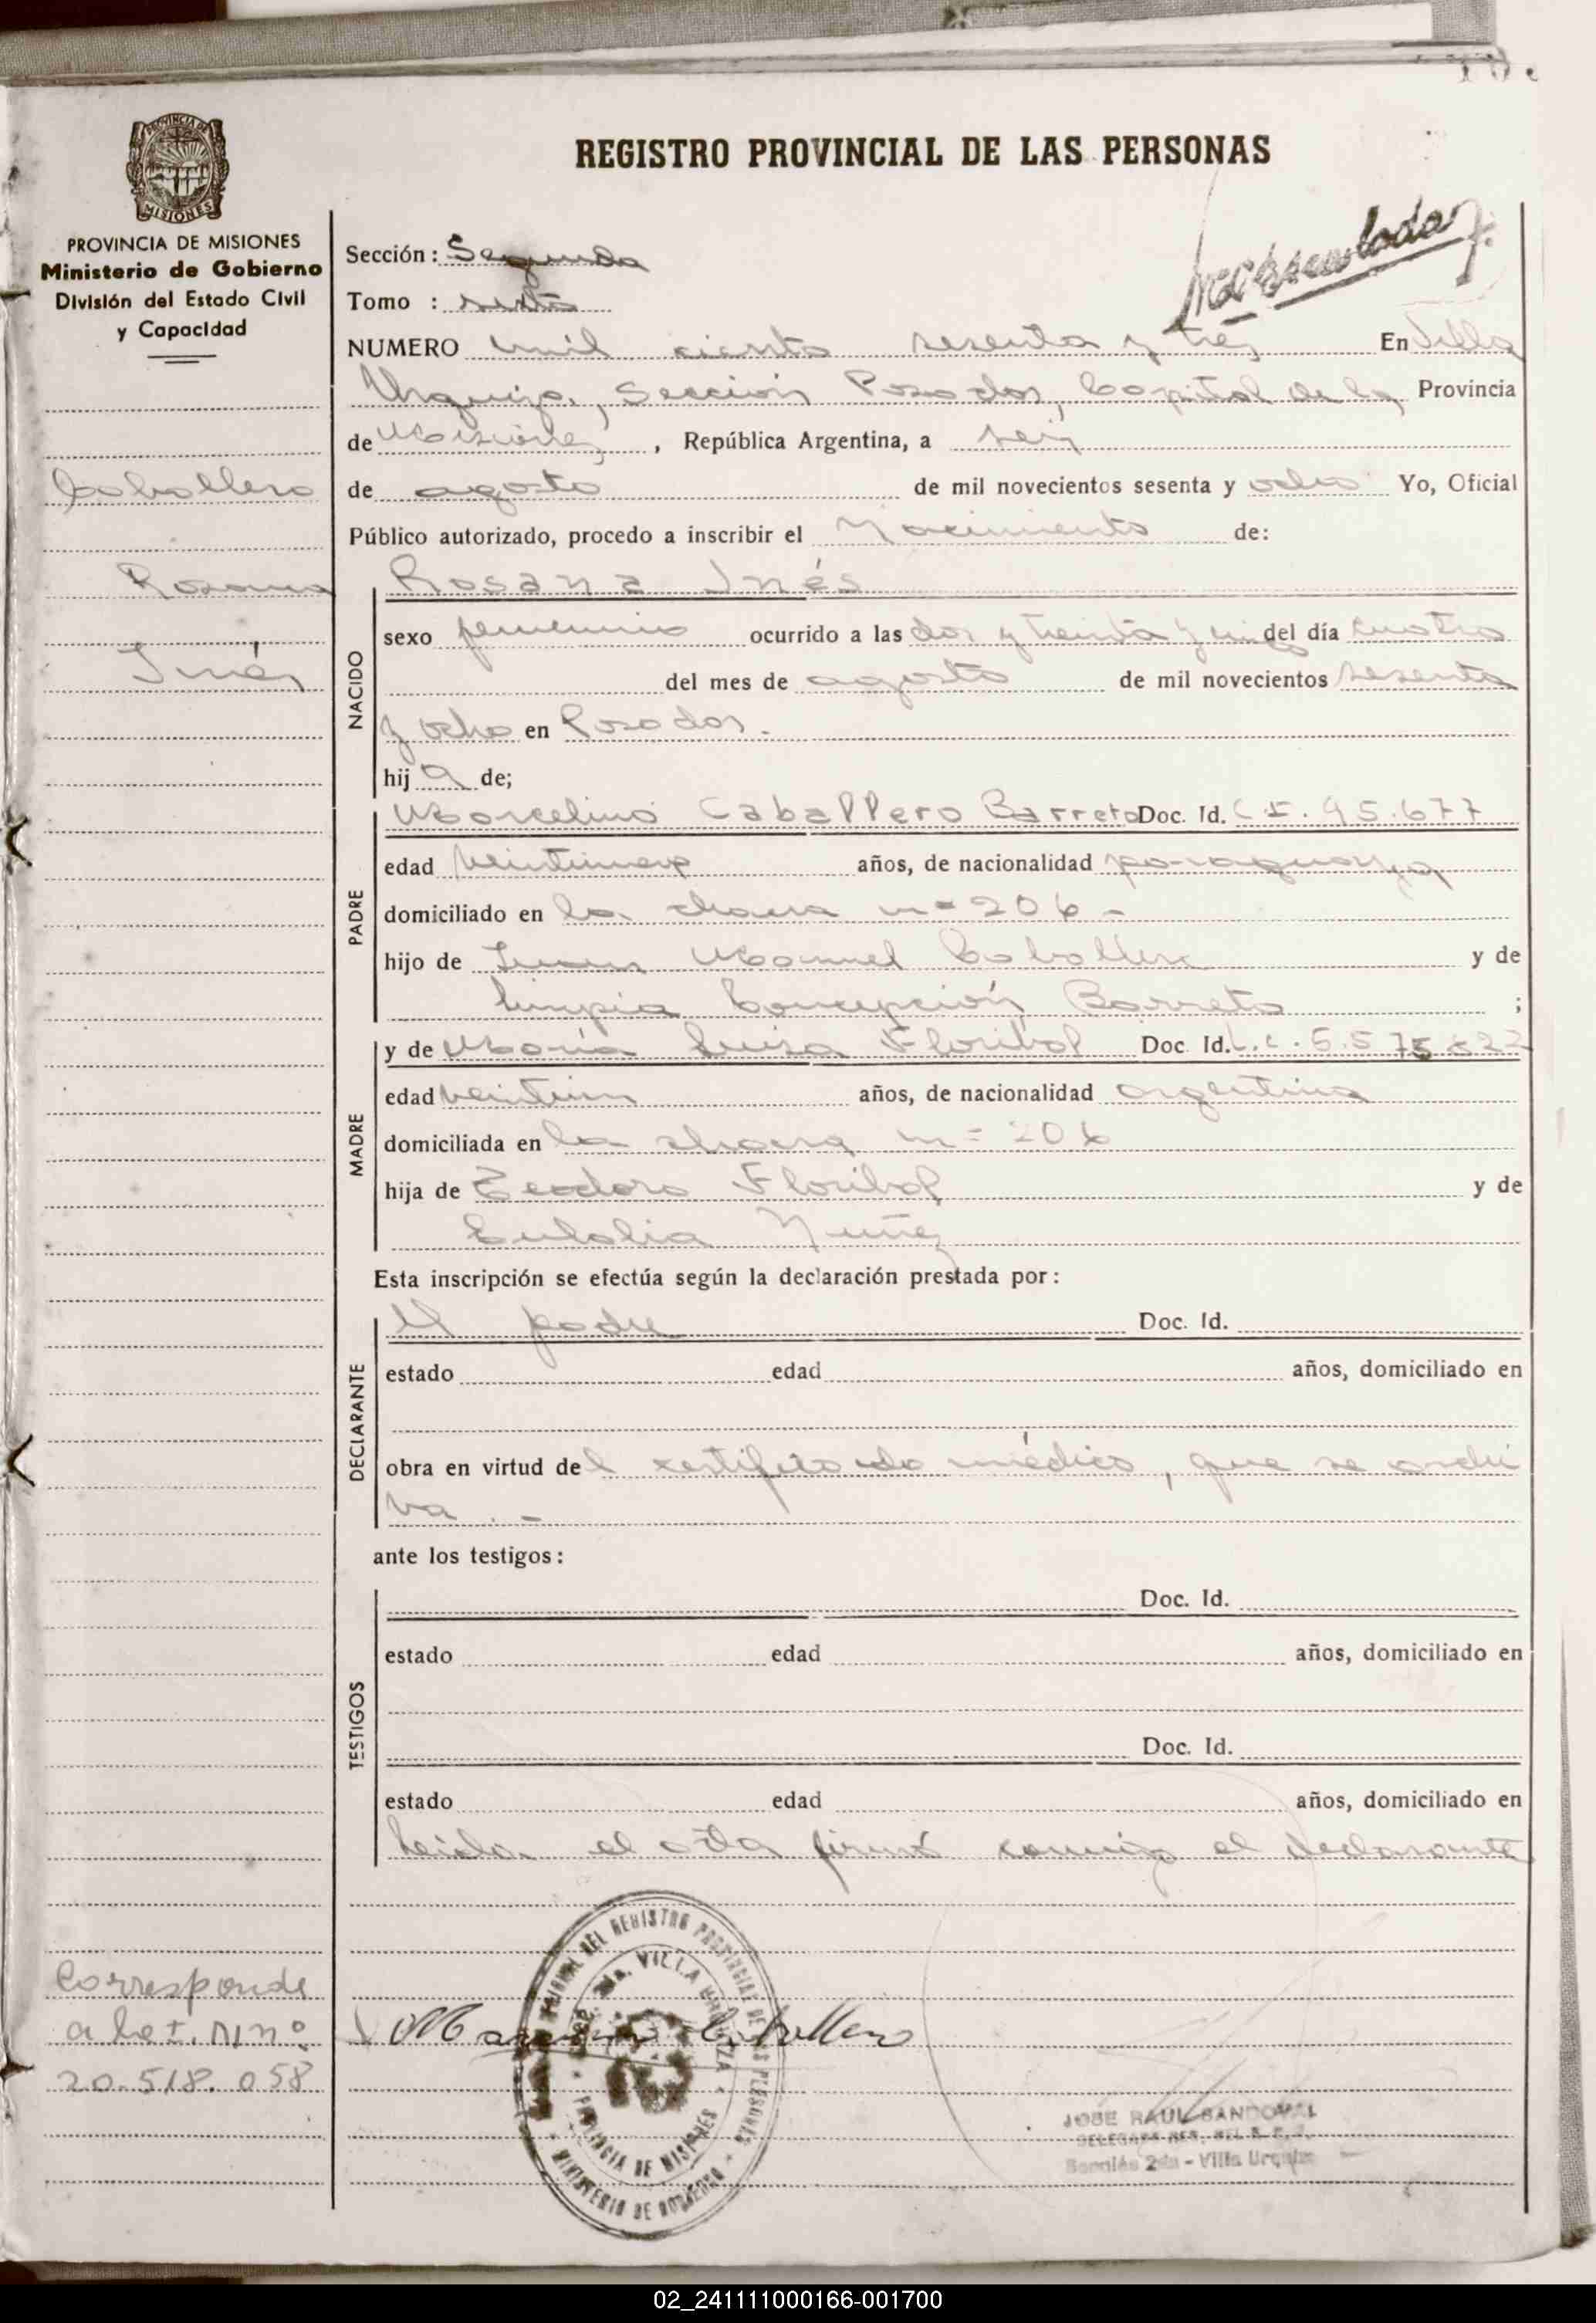 REGISTRO PROVINCIAL DE LAS PERSONAS
PROVINCIA DE
MISIONES
PROVINCIA DE MISIONES
Ministerio de Gobierno
División del Estado Civil
y Capacidad
Caballero
Rosana
Inés
Corresponde
20.518.058
Sección: Segunda
Tomo : sexto
NUMERO mil ciento sesenta y tres En Villa
Urquiza, Sección Posadas, Capital de la Provincia
de Misiones, República Argentina, a seis
de agosto de mil novecientos sesenta y ocho Yo, Oficial
Público autorizado, procedo a inscribir el Nacimiento de:
NACIDO
Rosana Inés
sexo femenino ocurrido a las dos y treinta y del día cuatro
del mes de agosto de mil novecientos sesenta
y ocho en Posadas.
hij a de;
PADRE
Marcelino Caballero Barreto Doc. Id. C.I. 95.677
edad veintinueve años, de nacionalidad paraguaya
domiciliado en la chacra nº 206 -
hijo de Juan Manuel Caballero y de
Limpia Concepción Barreto ;
MADRE
y de María Luisa Floribal Doc. Id. L.C. 5.575.822
edad veintiun años, de nacionalidad argentina
domiciliada en la chacra nº 206
hija de Teodoro Floribal y de
Eulalia Nuñez
Esta inscripción se efectúa según la declaración prestada por:
DECLARANTE
El padre Doc. Id.
estado edad años, domiciliado en
obra en virtud del certificado médico, que se archi
va . -
ante los testigos:
TESTIGOS
Doc. Id.
estado edad años, domiciliado en
Doc. Id.
estado edad años, domiciliado en
Leida el acta firmó conmigo el declarante
Marcelino Caballero
REGISTRO PROVINCIAL DE LAS PERSONAS
2da. VILLA URQUIZA
PROVINCIA DE MISIONES
MINISTERIO DE GOBIERNO
JOSE RAUL SANDOVAL
Sección 2da - Villa Urquiza
02_241111000166-001700